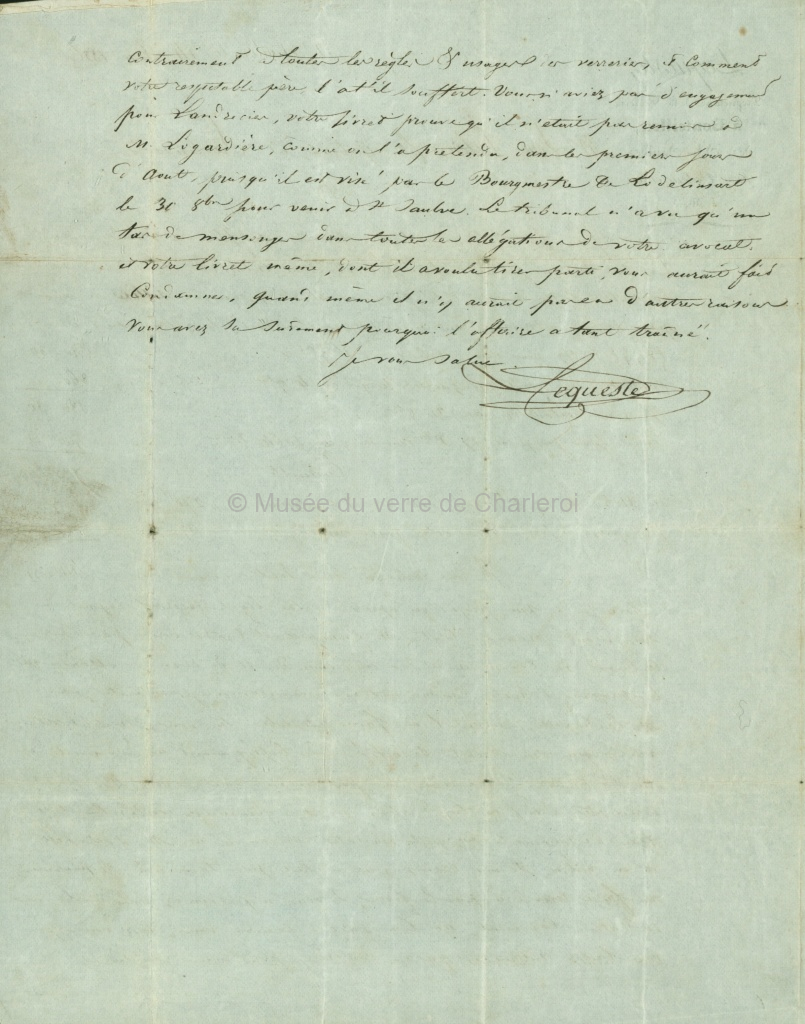 Contrairement à toutes les règles & usages en verreries, et comment
votre respectable père l'a t'il souffert. Vous n'aviez pas d'engagement
pour Landrecies, votre livret prouve qu'il n'était pas remis à
M. Ligardière, comme on l'a prétendu, dans les premiers jours
d'Aout, puisqu'il est visé par le Bourgmestre de Lodelinsart
le 30 8bre pour venir à St Saulve. Le tribunal n'a vu qu'un
tas de mensonges dans toutes les allégations de votre avocat.
et votre livret même, dont il a voulu tirer parti, vous aurait fait
Condamner, quand même il n'y aurait pas eu d'autres raisons
Vous avez su surement pourquoi l'affaire a tant trainé.
Je vous salue
Lequeste
© Musée du verre de Charleroi